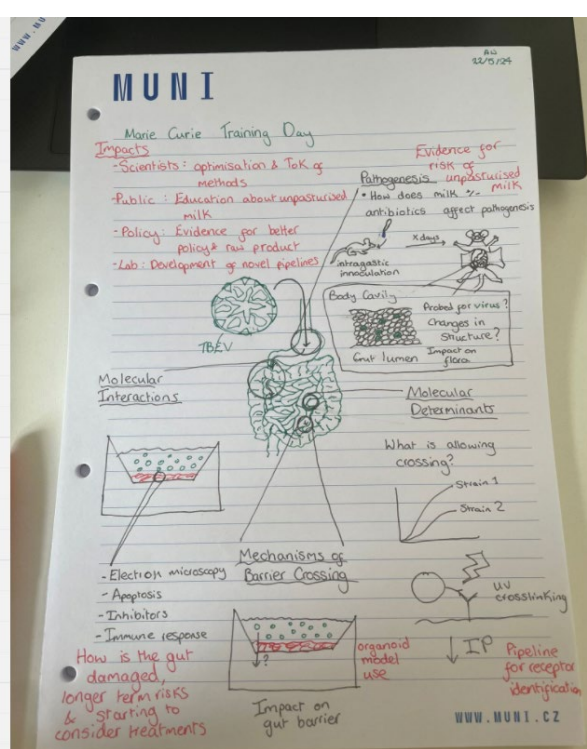 WWW.MU
AW
22/5/24
MUNI
Marie Curie Training Day
Impacts
-Scientists: optimisation & ToK of
methods
-Public: Education about unpasturised
milk
-Policy: Evidence for better
policy* raw product
-Lab: Development of novel pipelines
Evidence for
risk of
unpasturised
milk
Pathogenesis
• How does milk %-
antibiotics affect pathogenesis
intragastic
innoculation
x days
TBEV
Body Cavity
Gut lumen
Probed for virus?
Changes in
structure?
Impact on
flora
Molecular
Interactions
Molecular
Determinants
What is allowing
crossing?
Strain 1
Strain 2
- Electron microscopy
- Apoptosis
- Inhibitors
- Immune response
How is the gut
damaged,
longer term risks
& starting to
consider treatments
Mechanisms of
Barrier Crossing
?
organoid
model
use
Impact on
gut barrier
uv
crosslinking
IP
Pipeline
for receptor
identification
WWW.MUNI.CZ